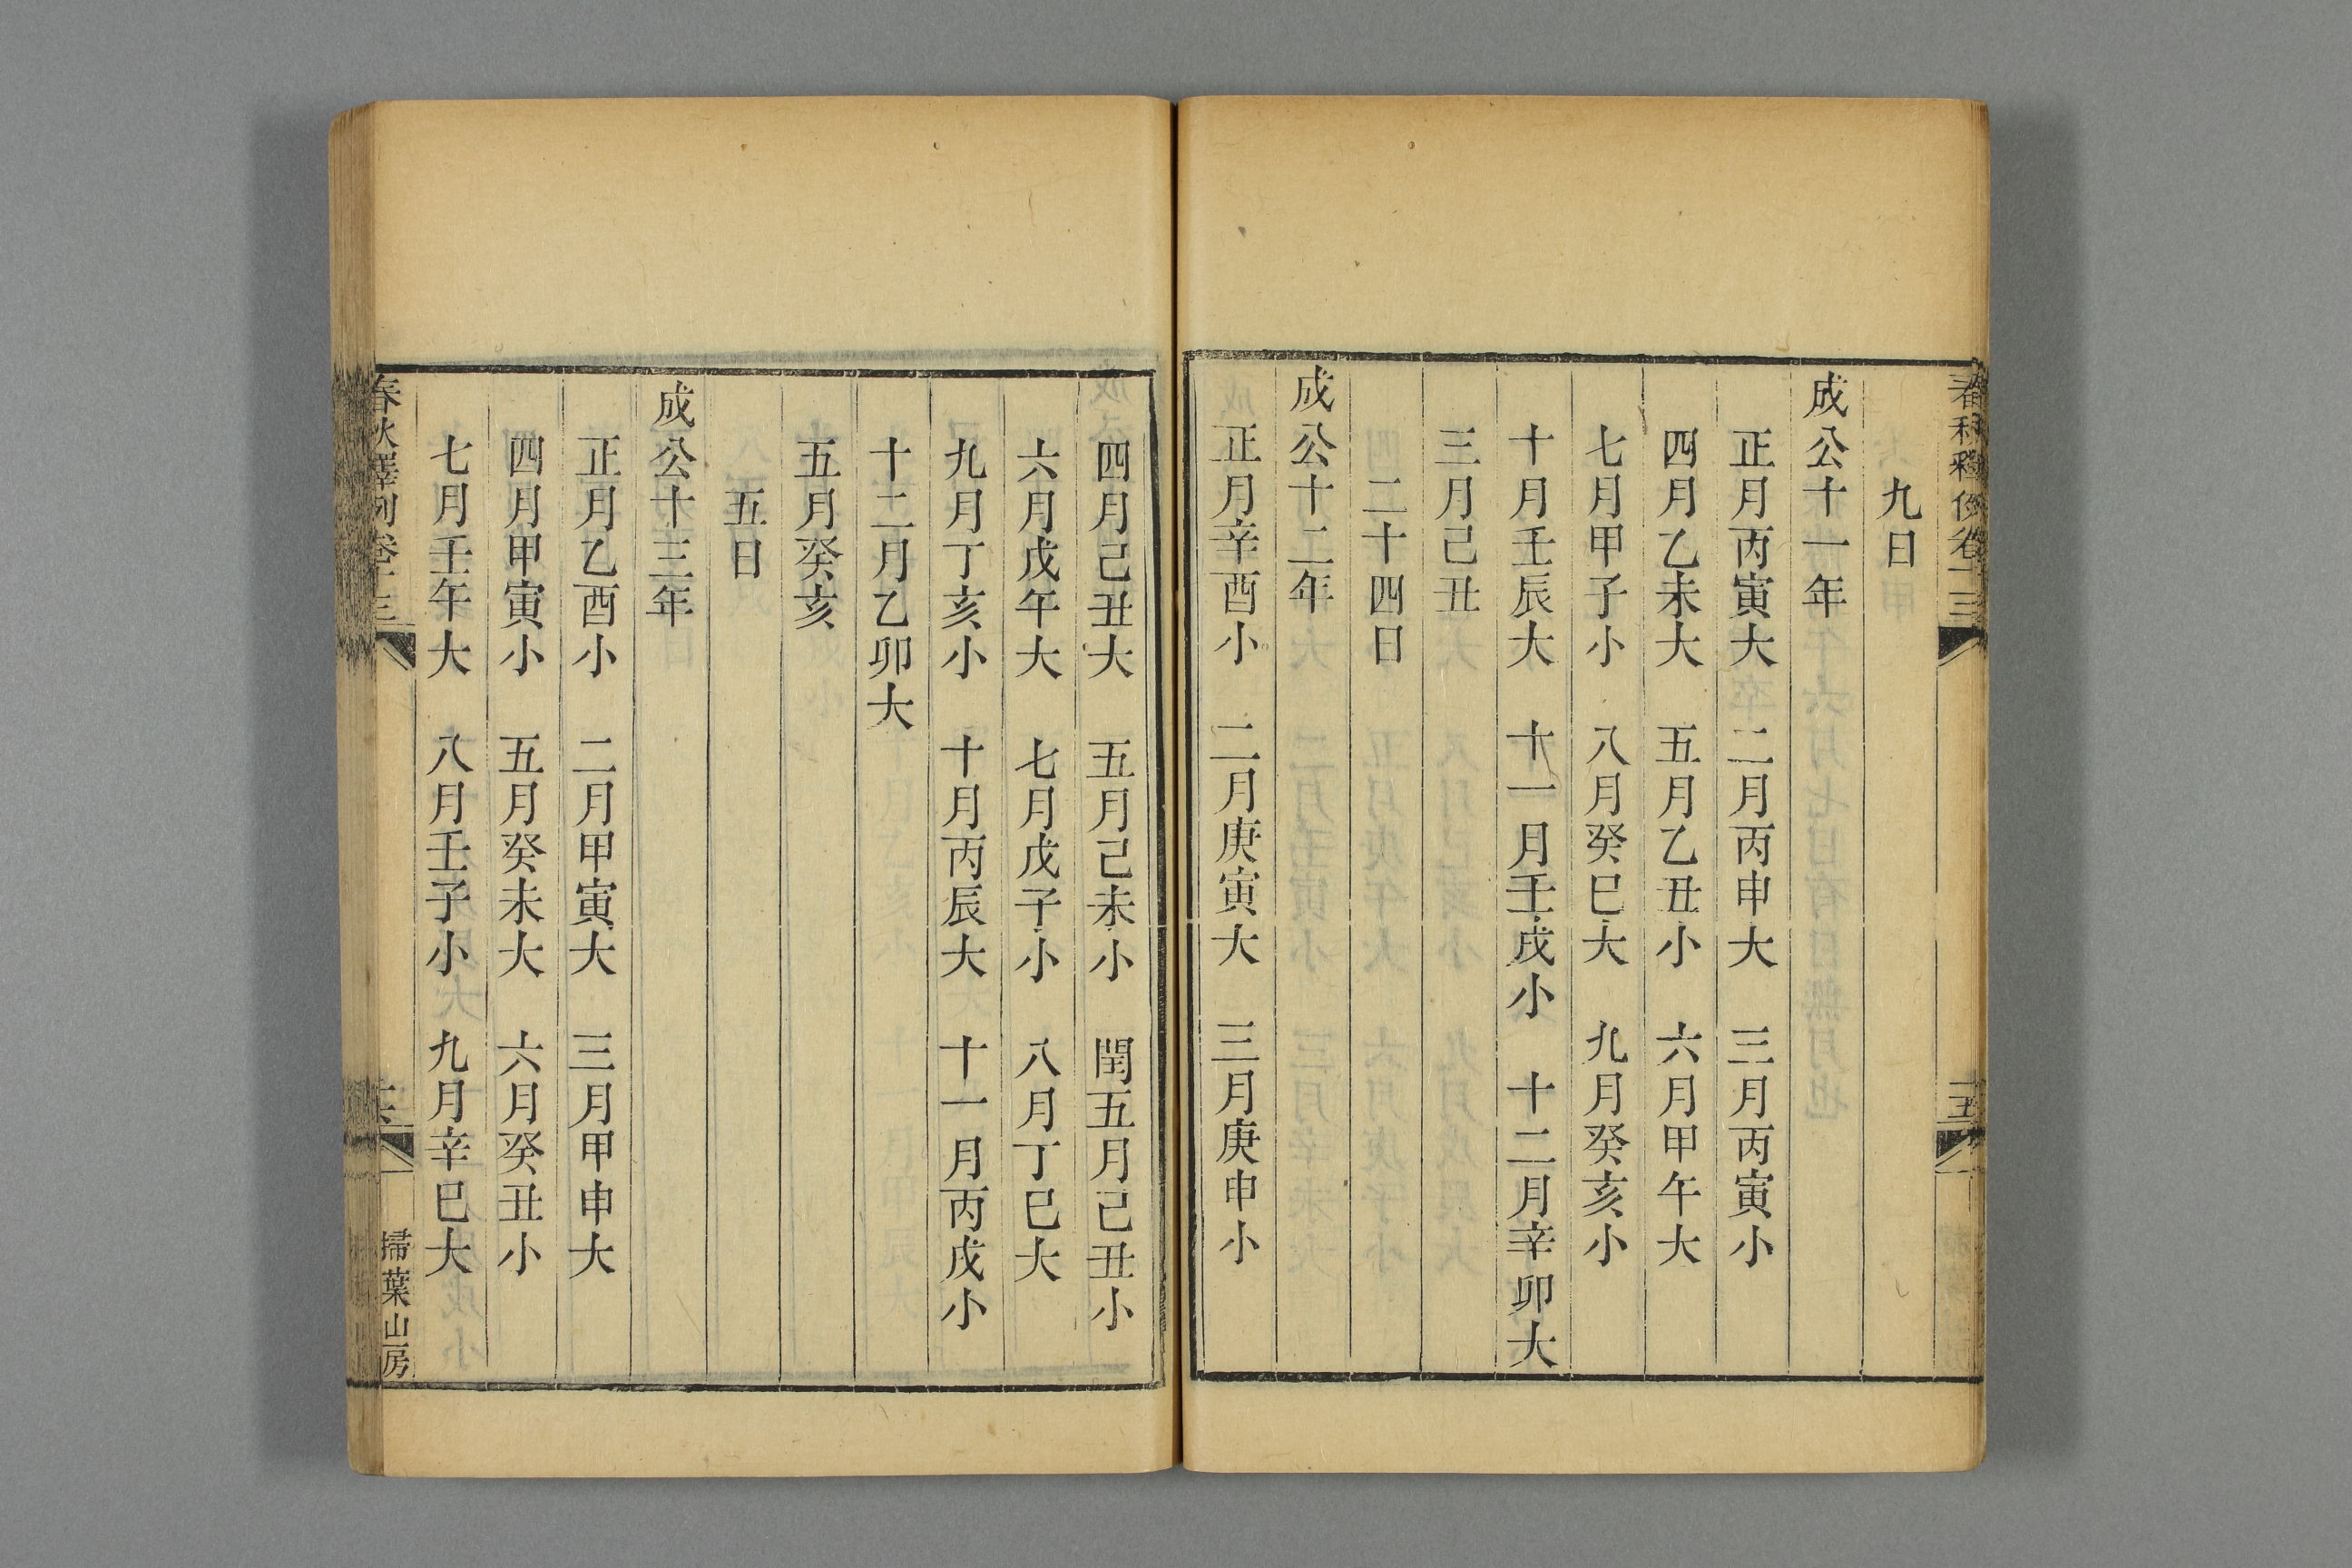 春秋釋例卷十三
十五
九日
成公十一年
正月丙寅大　二月丙申大　三月丙寅小
四月乙未大　五月乙丑小　六月甲午大
七月甲子小　八月癸巳大　九月癸亥小
十月壬辰大　十一月壬戌小　十二月辛卯大
三月己丑
二十四日
成公十二年
正月辛酉小　二月庚寅大　三月庚申小
四月己丑大　五月己未小　閏五月己丑小
六月戊午大　七月戊子小　八月丁巳大
九月丁亥小　十月丙辰大　十一月丙戌小
十二月乙卯大
五月癸亥
五日
成公十三年
正月乙酉小　二月甲寅大　三月甲申大
四月甲寅小　五月癸未大　六月癸丑小
七月壬午大　八月壬子小　九月辛巳大
春秋釋例卷十三
掃葉山房